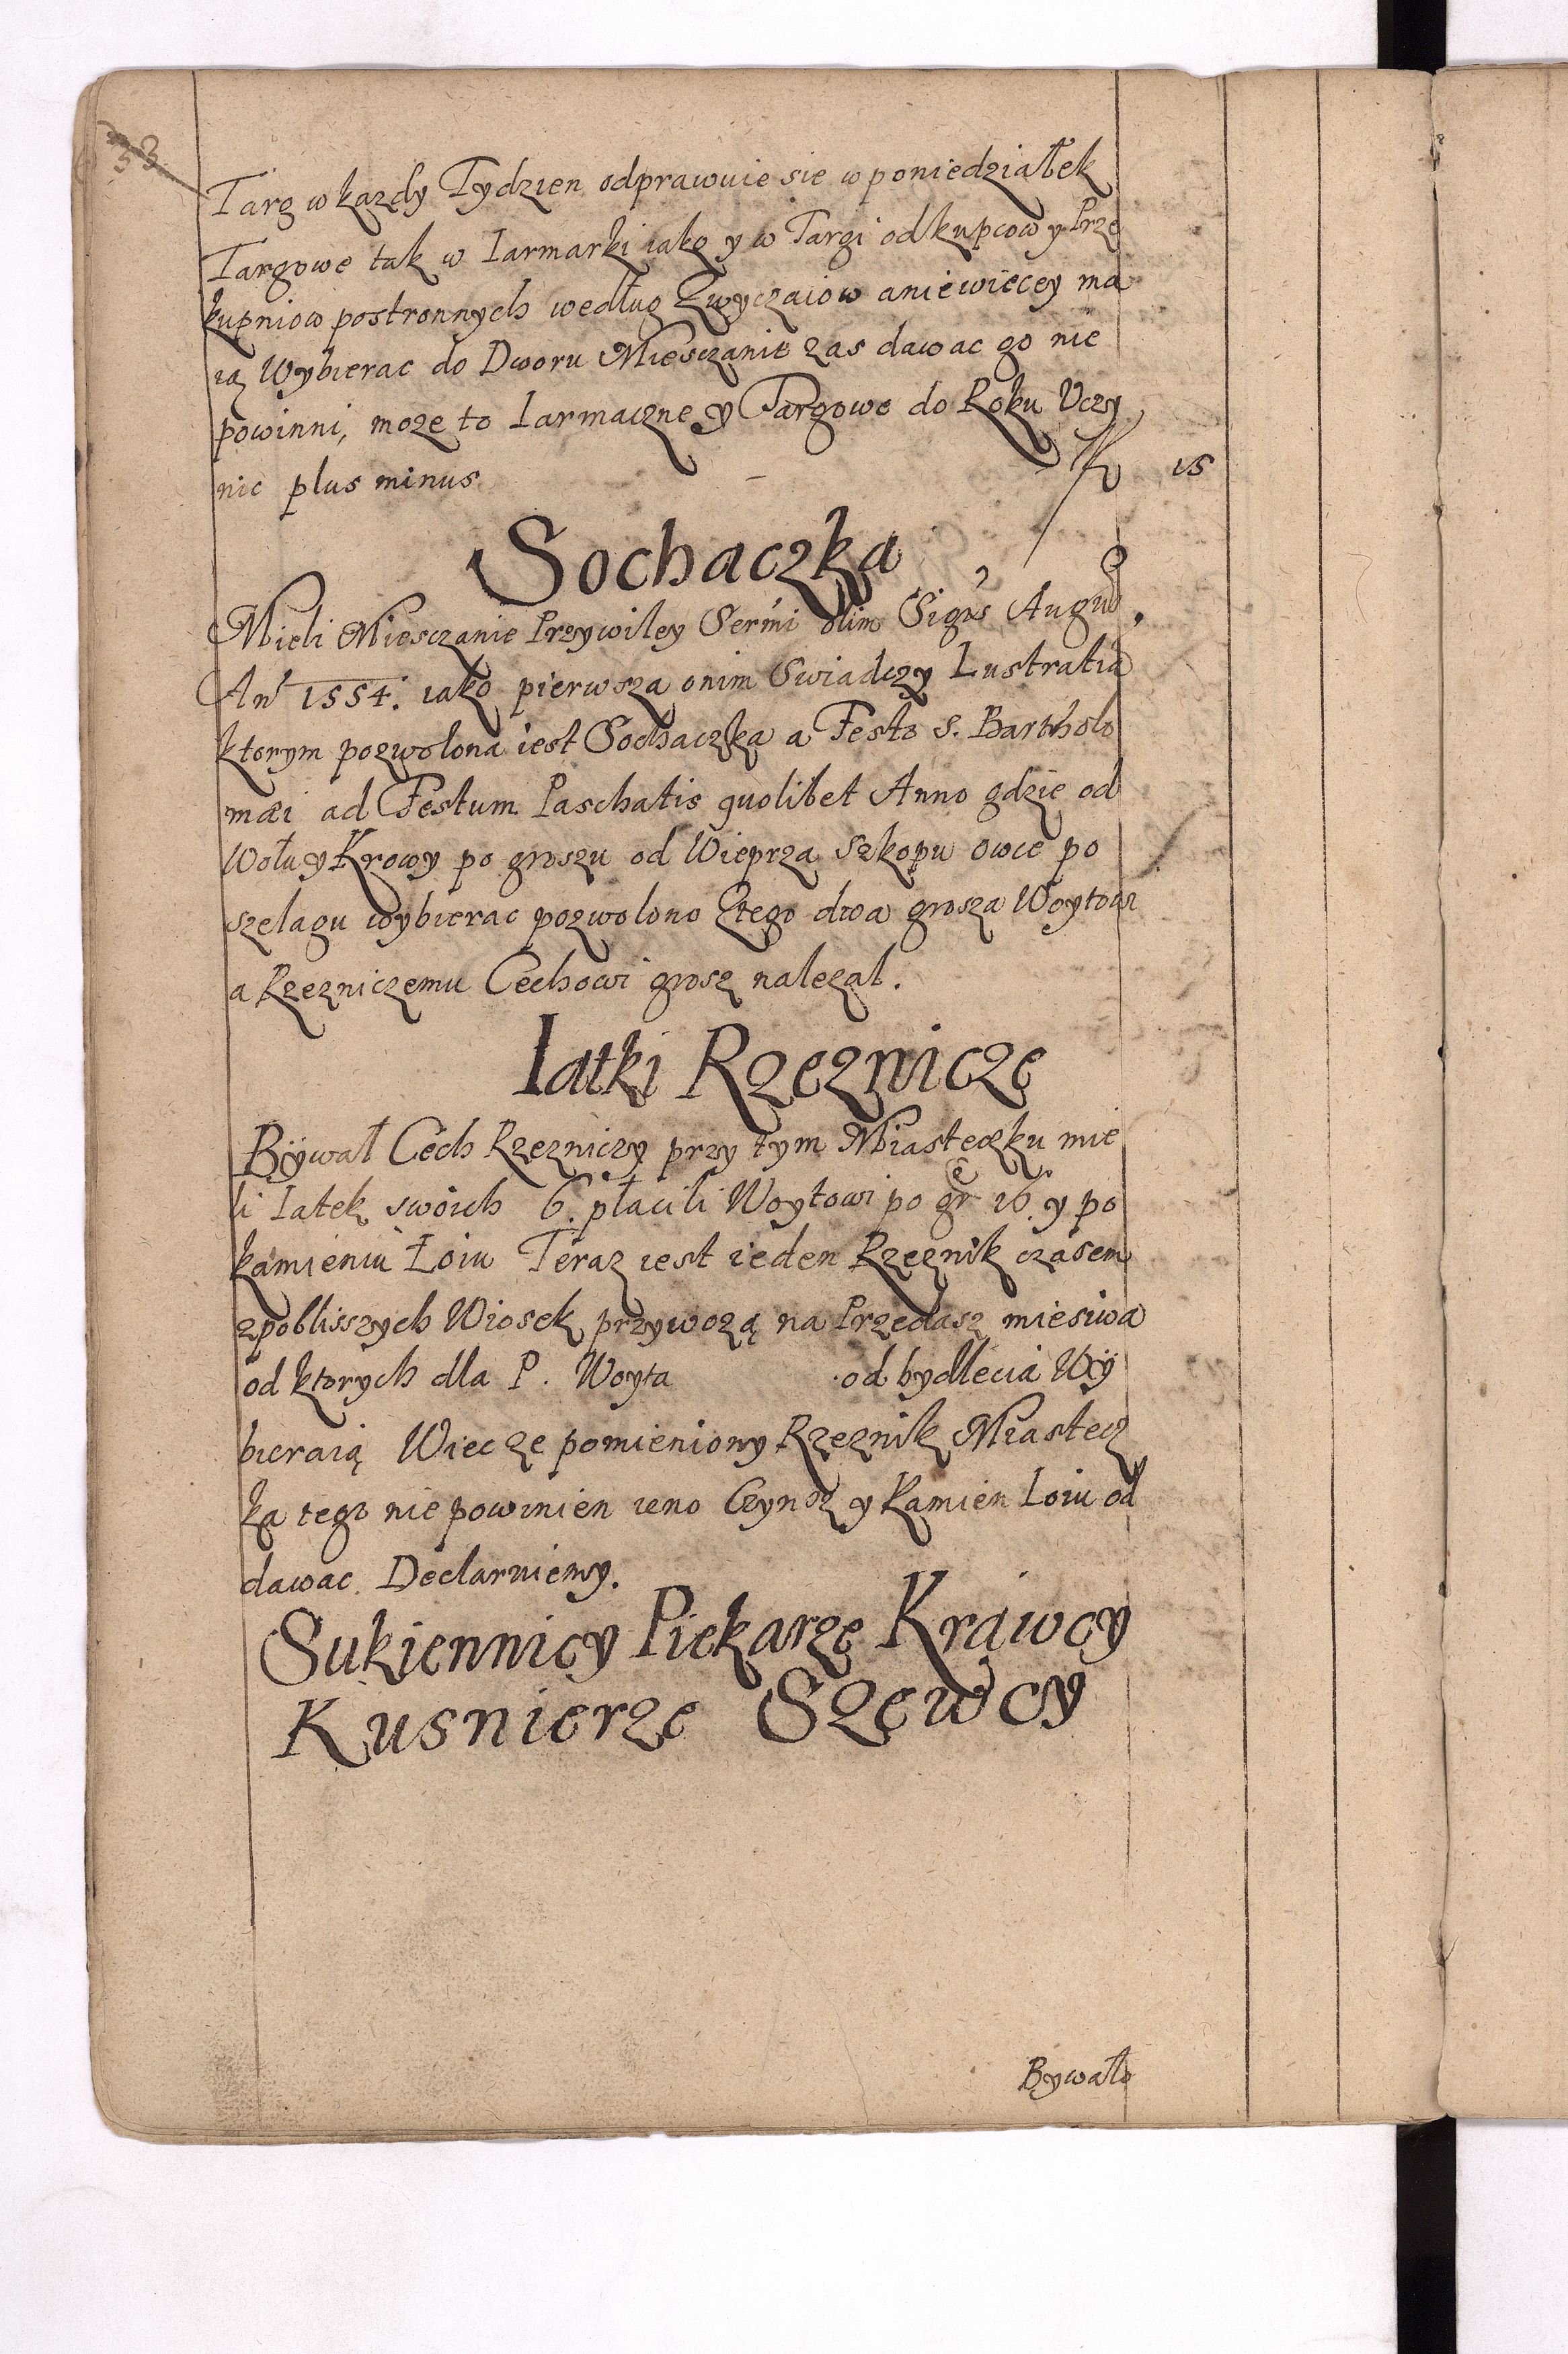 33
Targ w kazdy Tydzien odprawuie sie w poniedziałek
Targowe tak w Iarmarki iako y w Targi od kupcow y Prze
kupniow postronnych według Zwyczaiow a niewiecey ma
ią Wybierac do Dworu Miesczanie zas dawac go nie
powinni, moze to Iarmaczne y Targowe do Roku Uczy
nic plus minus - 15
Sochaczka
Mieli Miesczanie Przywiley Sermi olim Sigis Augu
An 1554. iako pierwsza onim Swiadczy Lustratia
ktorym pozwolona iest Sochaczka a Festo S. Bartholo
mæi ad Festum Paschatis quolibet Anno gdzie od
Wołu y Krowy po groszu od Wieprza Szkopu owce po
szelagu wybierac pozwolono Ztego dwa grosza Woytowi
a Rzezniczemu Cechowi grosz nalezał.
Iatki Rzeznicze
Bÿwał Cech Rzezniczy przy tym Miasteczku mie
li Iatek swoich 6. płacili Woytowi po gr 16. y po
kamieniu Łoiu Teraz iest ieden Rzeznik czasem
zpoblisszych Wiosek przywozą na Przedasz miesiwa
od ktorych dla P. Woyta od bydlecia Wÿ
bieraią Wiec ze pomieniony Rzeznik Miastecz
ka tego nie powinien ieno Czynsz y Kamien Loiu od
dawac. Declaruiemy.
Sukiennicy Piekarze Krawcy
Kusnierze Szewcy
Bywało